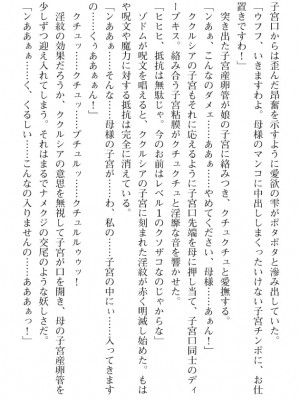 子宮口からは歪んだ昂奮を示すように愛欲の雫がポタポタと滲み出していた。
「ウフフ、いきますわよ、母様のマンコに中出ししまくったいけない子宮チンポに、お仕
置きですわ！
「ンあぁ、こんなのダメェ……あぁ……やめてください、母様……あぁん！」
突き出た子宮産卵管が娘の子宮に絡みつき、クチュクチュと愛撫する。
ククルシアの子宮もそれに応えるように子宮口先端を母に押し当て、子宮口同士のディ
ープキス、絡み合う子宮粘膜がクチュクチュと淫靡な音を響かせた。
「ヒヒヒ、抵抗は無駄じゃ。今のお前はレベル１のクソザコなのじゃからな」
ゾドムが呪文を唱えると、ククルシアの子宮に刻まれた淫紋が赤く明滅し始めた。もは
や呪文や魔力に対する抵抗は完全に消えている。
「ンあぁぁ……そんな……母様の子宮が……わ、私の……子宮の中にぃ……入ってきます
の……くぅあぁぁん！」
クチュッ……クチュ……プチュルッ……クチュルルゥゥ！
淫紋の効果だろうか、ククルシアの意思を無視して子宮が口を開き、母の子宮産卵管を
少しずつ迎え入れてしまう。それはまるでナメクジの交尾のような妖しさだ。
「ンああぁぁ……く、くるしい……こんなの入りませんの……あああぁっ！」